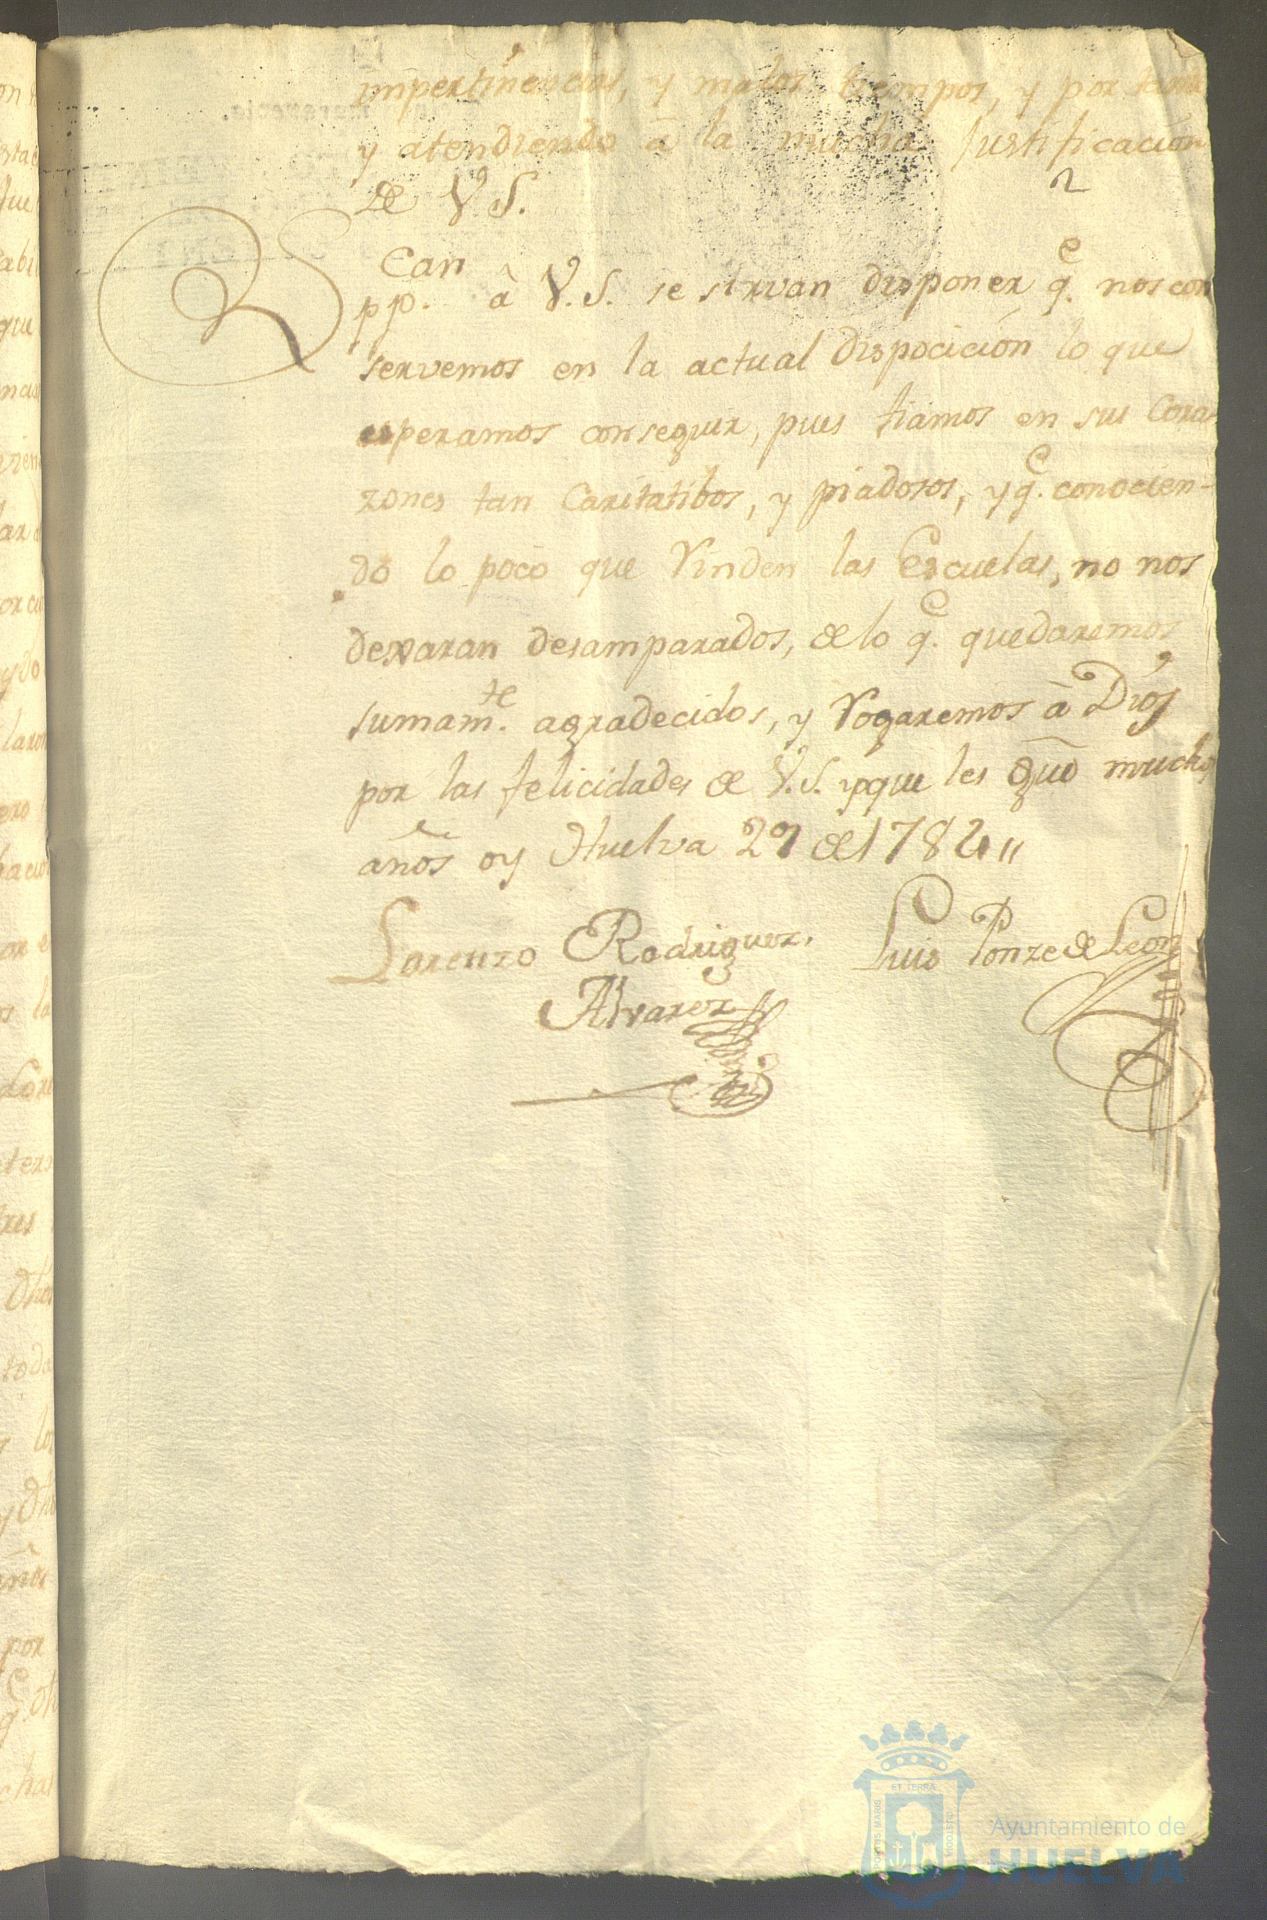 impertinencias, y malos tiempos, y por tanto
y atendiendo â la mucha Justificacion
de V.S.
2
pp.can â V.S. se sirvan disponer q.e nos con
servemos en la actual disposición lo que
esperamos conseguir, pues fiamos en sus Cora
zones tan Caritatibos, y piadosos, y q.e conocien-
do lo poco que rinden las Escuelas, no nos
dexaran desamparados, de lo q.e quedaremos
sumam.te agradecidos, y rogaremos â Dios
por las felicidades de V.S. y que les gue muchos
años oy Huelva 27 de 1782
Lorenzo Rodriguez Luis Ponze de Leon
Alvarez
ET TERRA
Ayuntamiento de
HUELVA